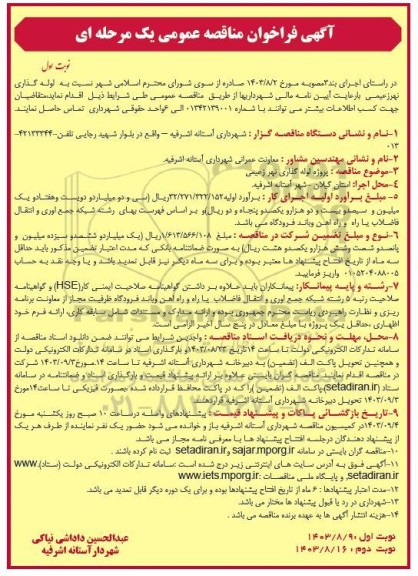 آگهی فراخوان مناقصه عمومی یک مرحله ای
نوبت اول
در راستای اجرای بند۳مصوبه مورخ ۱۴۰۳/۸/۲ صادره از سوی شورای محترم اسلامی شهر نسبت به لوله گذاری
نهرزعیمی بارعایت آیین نامه مالی شهرداریها از طریق مناقصه عمومی طی شرایط ذیل اقدام نماید،متقاضیان
جهت کسب اطلاعات بیشتر می توانند با شماره ۰۱۳۴۲۱۳۹۰۰۱ الی ۶واحد حقوقی شهرداری تماس حاصل نمایند.
۱-نام و نشانی دستگاه مناقصه گزار : شهرداری آستانه اشرفیه – واقع در بلوار شهید رجایی تلفن-۴۲۱۳۳۳۴۴-
۰۱۳
۲-نام و نشانی مهندسین مشاور : معاونت عمرانی شهرداری آستانه اشرفیه.
۳-موضوع مناقصه : پروژه لوله گذاری نهر زعیمی
۴-محل اجرا: استان گیلان - شهر آستانه اشرفیه.
۵- مبلغ برآورد اولیه اجرای کار : برآورد اولیه۳۲/۲۷۱/۳۲۲/۱۵۲ریال (سی و دو میلیاردو دویست وهفتادو یک
میلیون و سیصدو بیست و دو هزارو یکصدو پنجاه و دو ریال)و بر اساس فهرست بهای رشته شبکه جمع آوری و انتقال
فاضلاب یا راه و راه آهن وباند فرودگاه می باشد.
۶-نوع و مبلغ تضمین شرکت در مناقصه : مبلغ ۱/۶۱۳/۵۶۶/۱۰۸ریال (یک میلیاردو ششصدو سیزده میلیون و
پانصدو شصت وشش هزارو یکصدو هشت ریال) به صورت ضمانتنامه بانکی که مدت اعتبار تضمین مذکور باید حداقل
سه ماه از تاریخ افتتاح پیشنهاد ها معتبر بوده و برای سه ماه دیگر نیز قابل تمدید باشد و یا وجه نقد به حساب
۰۱۰۵۲۰۴۰۸۸۰۰۵ واریز فرمایید.
۷-رشته و پایه پیمانکار: پیمانکاران باید علاوه بر داشتن گواهینامه صلاحیت ایمنی کار(HSE) و گواهینامه
صلاحیت رتبه ۵ رشته شبکه جمع آوری و انتقال فاضلاب یا راه و راه آهن وباند فرودگاه ظرفیت مجاز از معاونت برنامه
ریزی و نظارت راهبردی ریاست محترم جمهوری بوده و ارائه مدارک و مستندات شامل سابقه کاری، ارائه فرم خود
اظهاری ،حداقل یک پروژه با مبلغ معادل در پنج سال اخیر الزامی است.
۸-محل، مهلت و نحوه دریافت اسناد مناقصه : واجدین شرایط می توانند ضمن دانلود اسناد مناقصه از
سامانه تدارکات الکترونیکی دولت تا ساعت ۱۴تاریخ ۱۴۰۳/۰۸/۲۳و بارگذاری اسناد در سامانه تدارکات الکترونیکی دولت
و همچنین تحویل پاکت الف (تضمین) به دبیرخانه شهرداری آستانه اشرفیه تا ساعت ۱۴ مورخ۱۴۰۳/۰۹/۳ شرکت
در مناقصه اقدام نمایند. مناقصه گران بایستی علاوه بر ارائه پیشنهاد قیمت، بارگذاری اسناد و ضمانتنامه در سامانه
ستاد (setadiran.ir) پاکت الف (تضمین )را یک در پاکت محفظ قرارداده شده بصورت فیزیکی تا ساعت۱۴مورخ
۱۴۰۳/۰۹/۳ تحویل دبیرخانه شهرداری آستانه اشرفیه قراردهند.
۹-تاریخ بازگشائی پاکات و پیشنهاد قیمت : پیشنهادهای واصله درساعت ۱۰ صبح روز یکشنبه مورخ
۱۴۰۳/۰۹/۴درکمیسیون مناقصه شهرداری آستانه اشرفیه باز و خوانده می شود حضور یک نفر نماینده از طرف هر یک
از پیشنهاد دهندگان درجلسه افتتاح پیشنهاد ها با معرفی نامه مجاز می باشد.
۱۰-مناقصه گران بایستی در سامانه sajar.mporg.ir و setadiran.ir ثبت نام کرده باشند .
۱۱-آگهی فوق به آدرس سایت های اینترنتی زیر درج شده است :سامانه تدارکات الکترونیکی دولت (ستاد).www
setadiran.ir و پایگاه ملی مناقصات :www.iets.mporg.ir.
۱۲-مدت اعتبار پیشنهادها : ۶ ماه از تاریخ افتتاح پیشنهادها بوده و برای یک دوره دیگر قابل تمدید می باشد.
۱۳-شهرداری در رد یا قبول پیشنهاد ها مختار می باشد.
۱۴-هزینه انتشار آگهی ها به عهده برنده مناقصه می باشد .
نوبت اول :۱۴۰۳/۸/۹
نوبت دوم : ۱۴۰۳/۸/۱۶
عبدالحسین داداشی نیاکی
شهردارآستانه اشرفیه